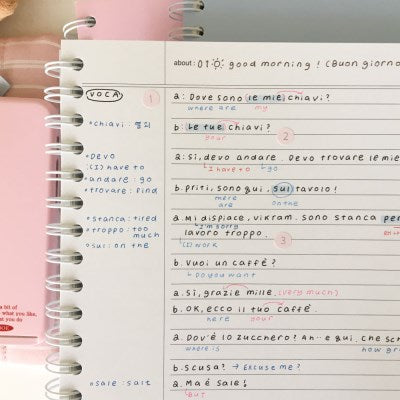 about: 01 good morning! (Buon giorno
VOCA
1
a: Dove sono le mie chiavi?
where are my
• chiavi: 열쇠
b: Le tue chiavi?
your
2
• DEVO
(I) have to
• andare: go
• trovare: find
a: Sì, devo andare. Devo trovare le mie
I have to go
b. priti, sono qui, sul tavolo!
here are on the
• stanca: tired
• troppo: too much
• sul: on the
a. Mi dispiace, vikram. sono stanca per
I'm sorry
lavoro troppo.
(I) work
3
b. Vuoi un caffè?
Do you want
a. Sì, grazie mille. (very much)
b. OK, ecco il tuo caffè.
here your
a. Dov'è lo zucchero? Ah-- e qui. che sch
where is how gr
b. scusa? → Excuse me?
• sale: salt
a. Ma è sale!
BUT
a bit of
what you like,
at you do